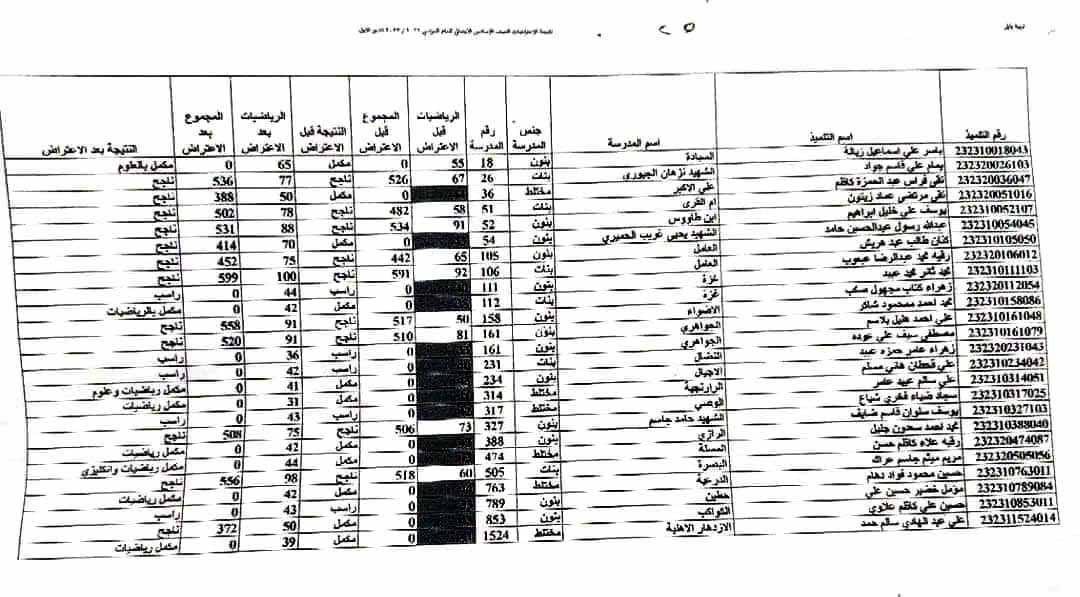 تربية بابل
نتيجة الاعتراضات الصف السادس الابتدائي للعام الدراسي ٢٠٢٢ / ٢٠٢٣ الدور الاول
رقم التلميذ اسم التلميذ اسم المدرسة جنس المدرسة رقم المدرسة الرياضيات قبل الاعتراض المجموع قبل الاعتراض النتيجة قبل الاعتراض الرياضيات بعد الاعتراض المجموع بعد الاعتراض النتيجة بعد الاعتراض
232310018043 ياسر علي اسماعيل زبالة السيادة بنون 18 55 0 مكمل 65 0 مكمل بالعلوم
232320026103 علي قاسم جواد الشهيد نزهان الجبوري بنات 26 67 526 ناجح 77 536 ناجح
232320036047 تقى فراس عبد الحمزة كاظم علي الاكبر مختلط 36 0 مكمل 50 388 ناجح
232320051016 تقى مرتضى عماد زيتون ام القرى بنات 51 58 482 ناجح 78 502 ناجح
232310052107 يوسف علي خليل ابراهيم ابن طاووس بنون 52 91 534 ناجح 88 531 ناجح
232310054045 عبدالله رسول عبدالحسين حامد الشهيد يحيى غريب الحميري بنون 54 0 مكمل 70 414 ناجح
232310105050 كنان طالب عبد هريش العامل بنون 105 65 442 ناجح 75 452 ناجح
232320106012 رقيه محمد عبدالرضا عبعوب العامل بنات 106 92 591 ناجح 100 599 ناجح
232310111103 محمد ثائر محمد عبيد غزة بنون 111 0 راسب 44 0 راسب
232320112054 زهراء كتاب مجهول غزة بنات 112 0 مكمل 42 0 مكمل بالرياضيات
232310158086 محمد احمد محمود شاكر الاضواء بنون 158 50 517 ناجح 91 558 ناجح
232310161048 علي احمد هليل بلاسم الجواهري بنون 161 81 510 ناجح 91 520 ناجح
232310161079 مصطفى سيف علي عوده الجواهري بنون 161 0 راسب 36 0 راسب
232320231043 زهراء عامر حمزه عبيد النضال بنات 231 0 راسب 42 0 راسب
232310234042 علي قحطان هاني مسلم الاجيال بنون 234 0 مكمل 41 0 مكمل رياضيات وعلوم
232310314051 علي سالم عبيد عامر الرارنجية مختلط 314 0 مكمل 31 0 مكمل رياضيات
232310317025 سجاد ضياء فخري شياع الوصي مختلط 317 0 راسب 43 0 راسب
232310327103 يوسف سلوان قاسم ضايف الشهيد حامد جاسم بنون 327 73 506 ناجح 75 508 ناجح
232310388040 محمد احمد سعدون جليل الرازي بنون 388 0 مكمل 42 0 مكمل رياضيات
232320474087 رقية علاء كاظم حسن المسلة مختلط 474 0 مكمل 44 0 مكمل رياضيات وانكليزي
232320505056 مريم ميثم جاسم عراك البصرة بنات 505 60 518 ناجح 98 556 ناجح
232310763011 حسين محمود فواد دهام الدرعية مختلط 763 0 مكمل 42 0 مكمل رياضيات
232310789084 مؤمل خضير حسين علي حطين بنون 789 0 راسب 43 0 راسب
232310853011 حسين علي كاظم علاوي الكواكب بنون 853 0 مكمل 50 372 ناجح
232311524014 علي عبد الهادي سالم حمد الازدهار الاهلية مختلط 1524 0 مكمل 39 0 مكمل رياضيات